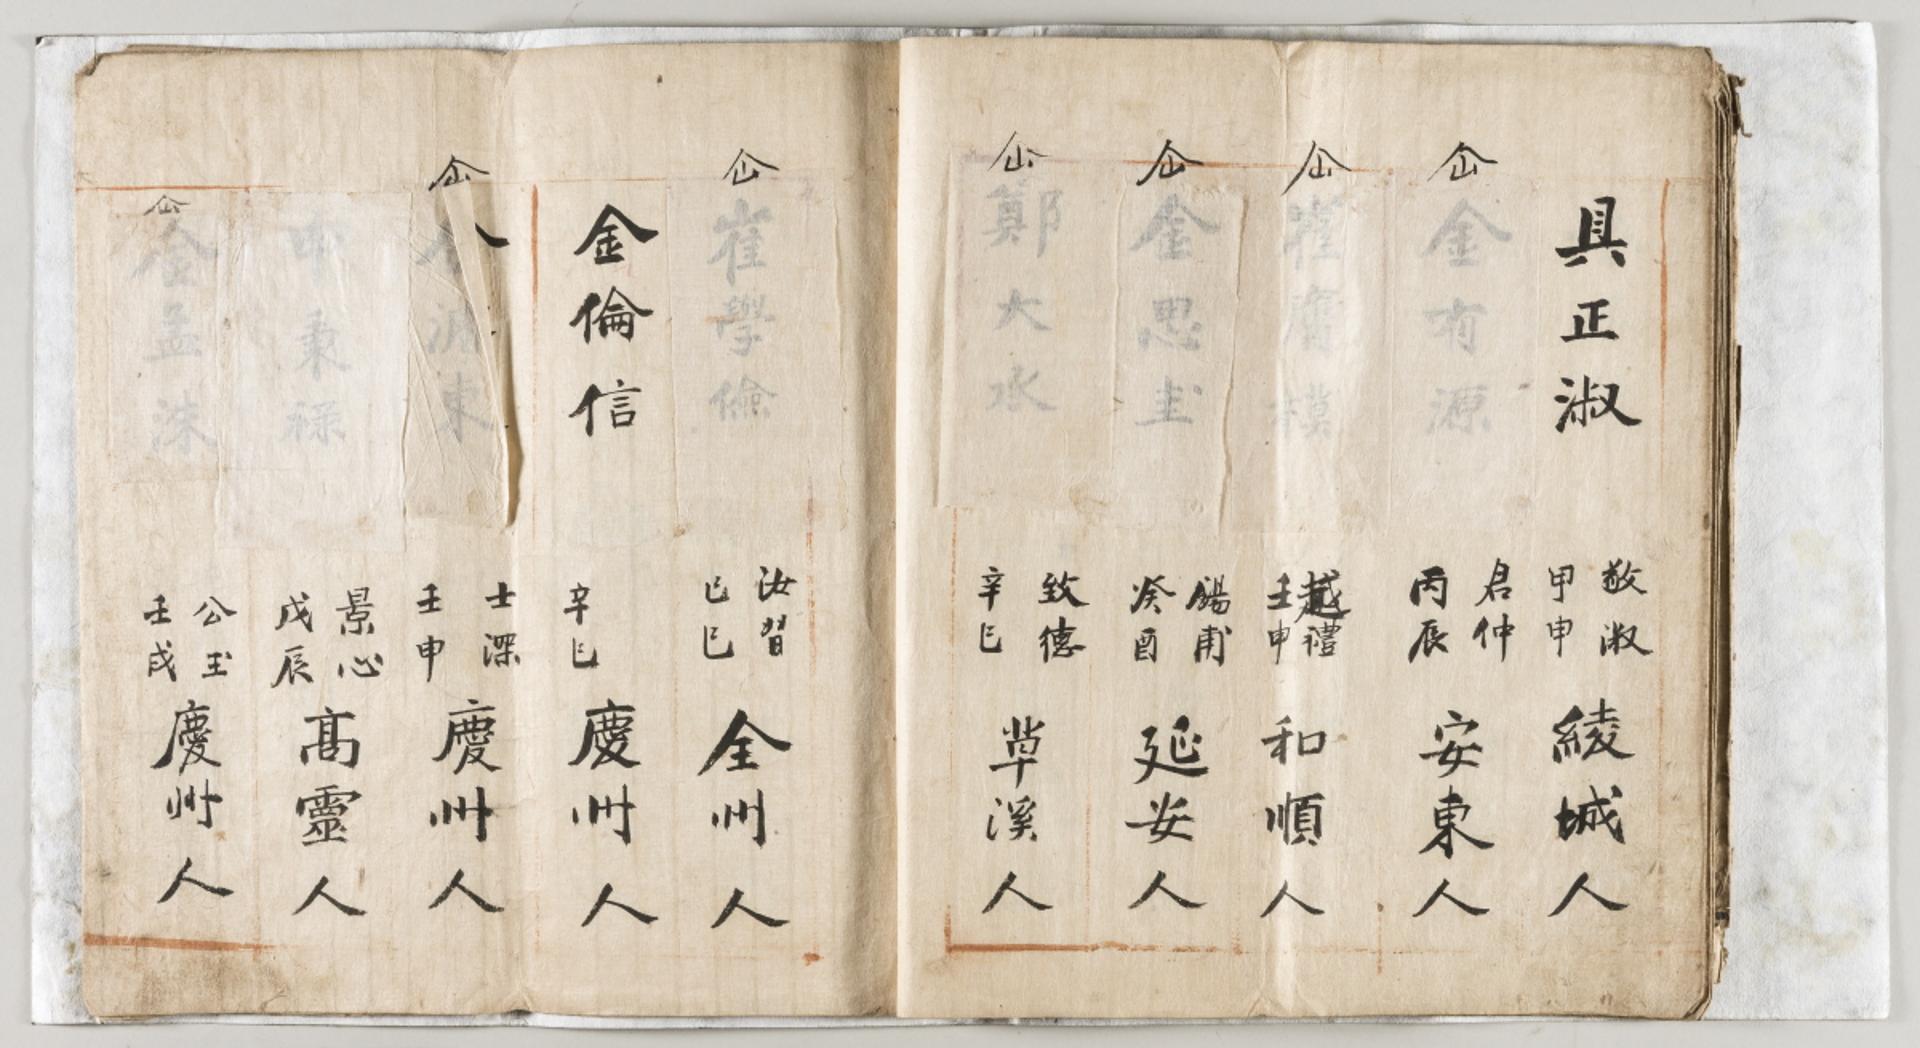 具正淑
敬淑
甲申
綾城人
仚
金有源
君仲
丙辰
安東人
仚
崔
禮
壬申
和順人
仚
金思圭
錫甫
癸酉
延安人
仚
鄭大丞
致德
辛巳
草溪人
仚
崔學儉
汝習
己巳
全州人
金倫信
辛巳
慶州人
仚
金 東
士深
壬申
慶州人
申秉祿
景心
戊辰
高靈人
仚
金孟洙
公玉
壬戌
慶州人